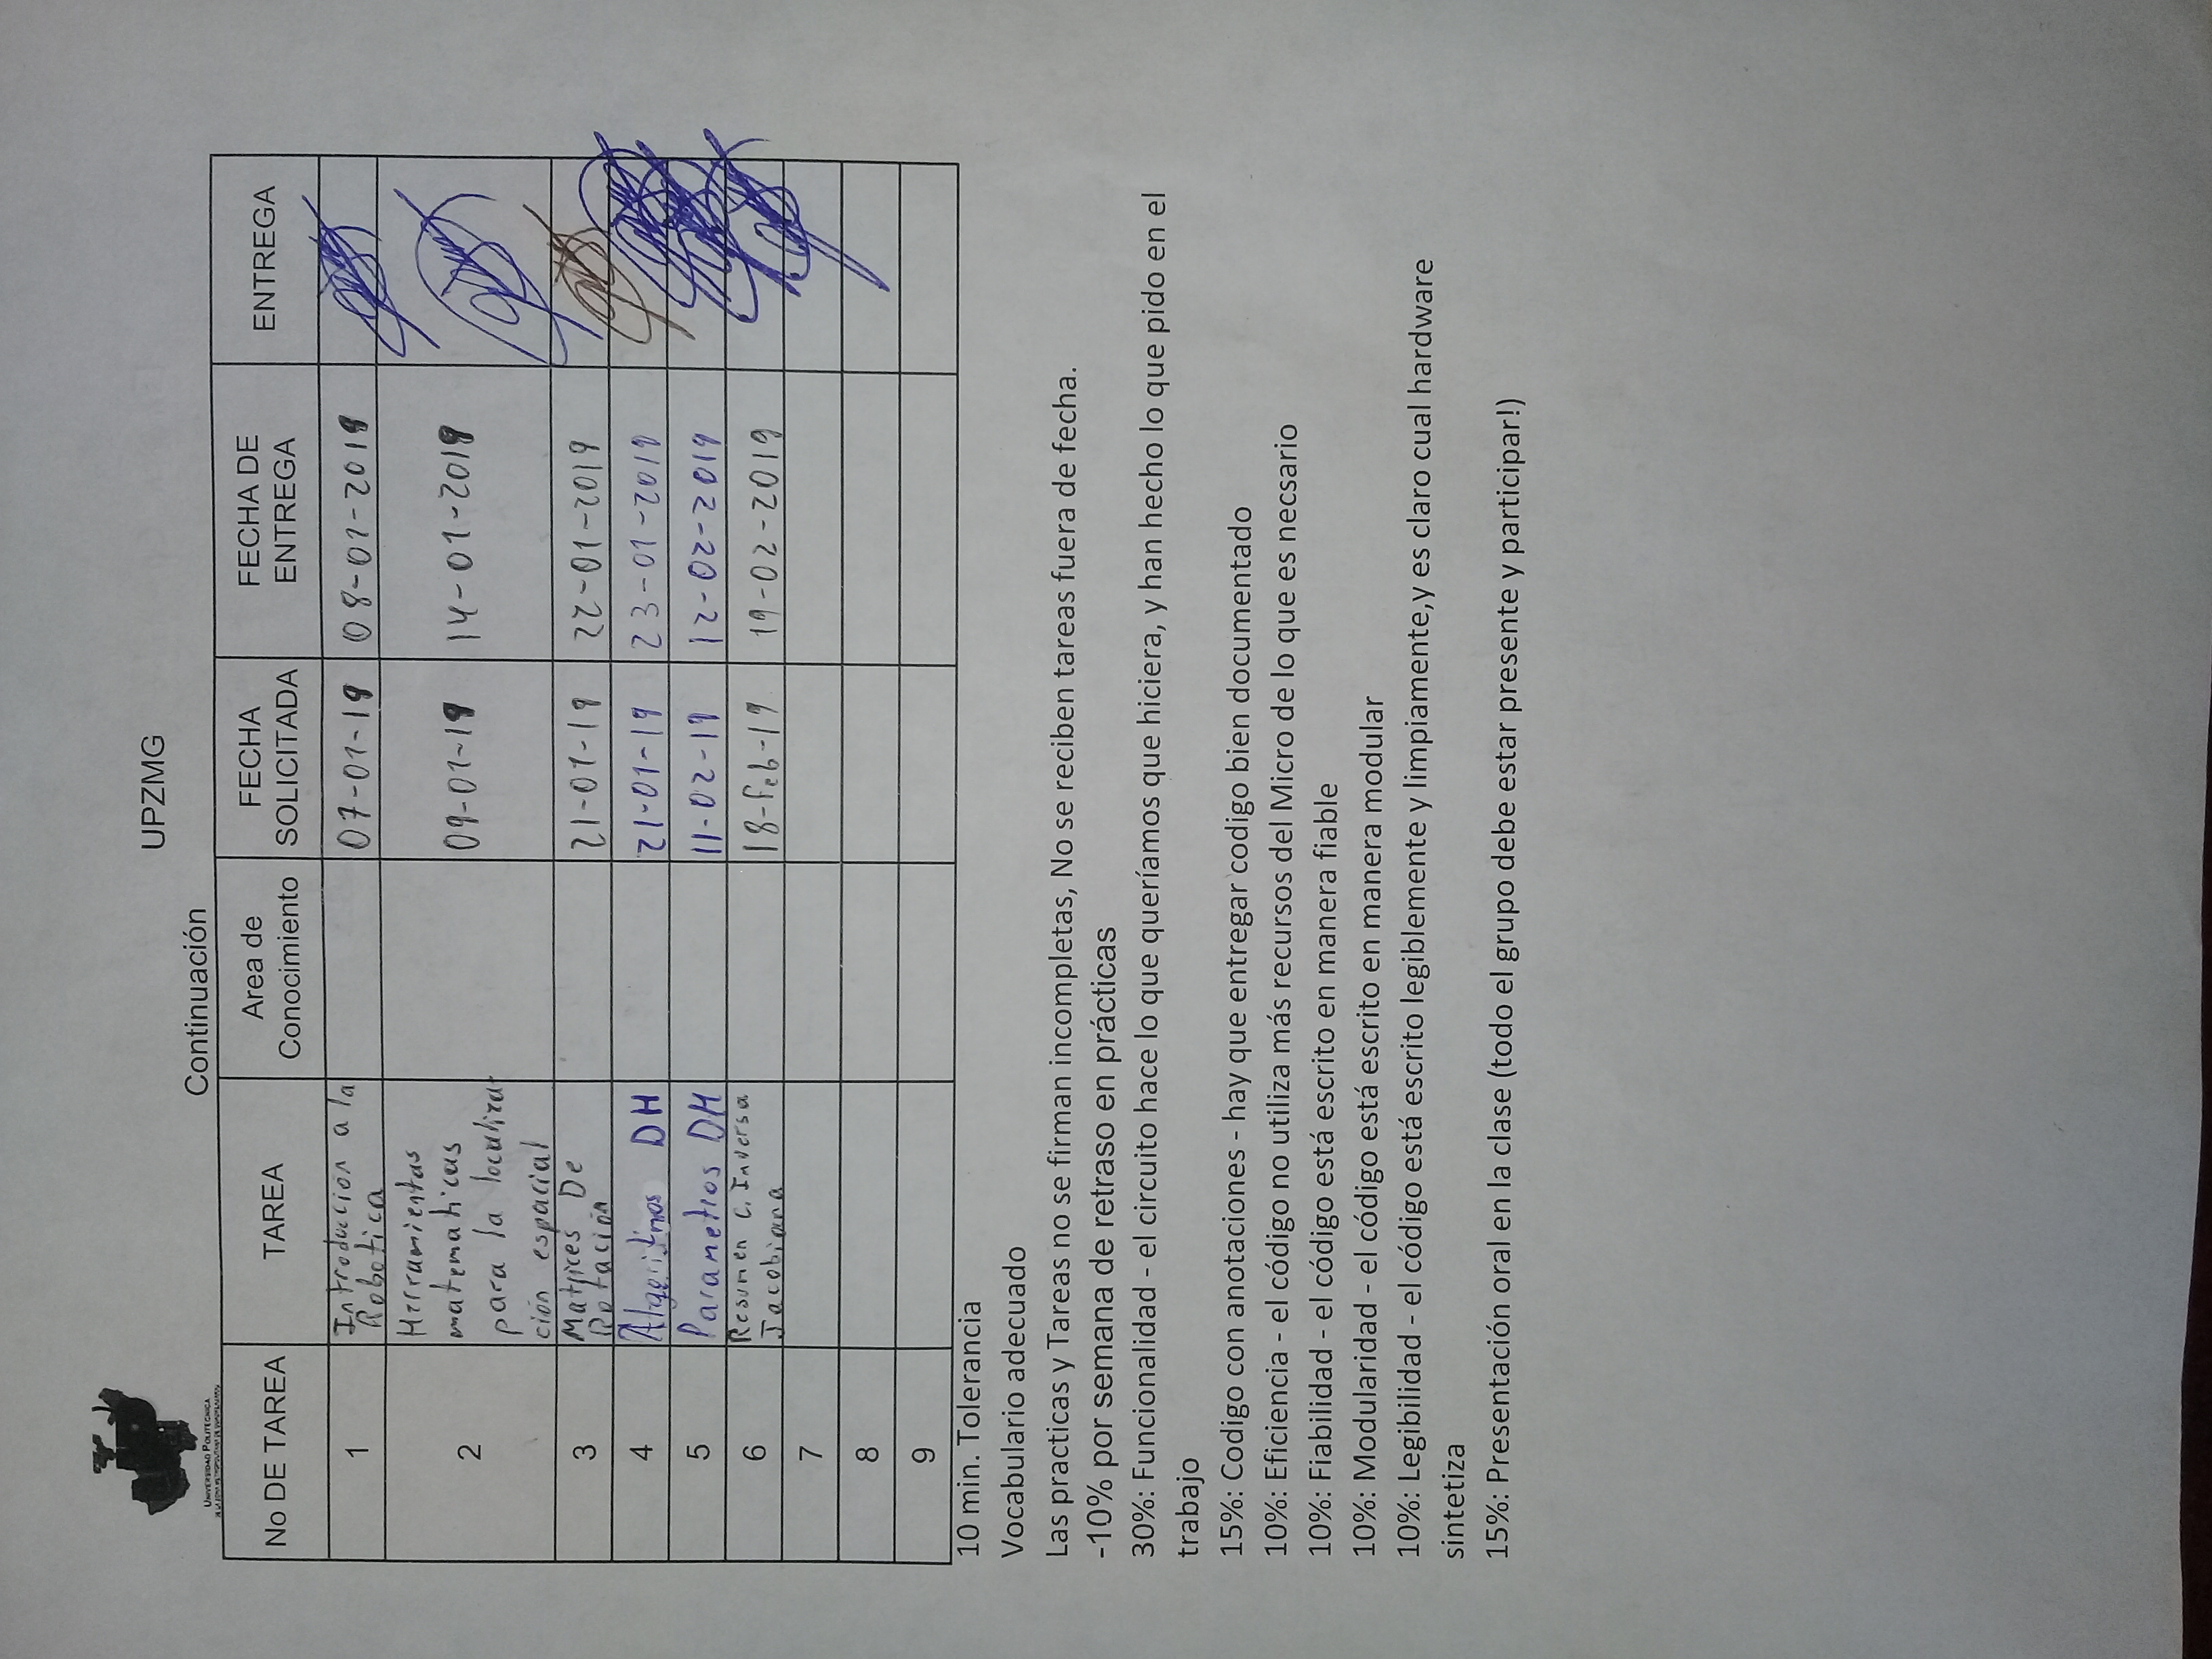 UPZMG
UNIVERSIDAD POLITECNICA
DE LA ZONA METROPOLITANA DE GUADALAJARA
Continuación
No DE TAREA TAREA Area de Conocimiento FECHA SOLICITADA FECHA DE ENTREGA ENTREGA
1 Introducción a la 07-01-19 08-01-2019
Robotica
2 Herramientas 09-01-19 14-01-2019
matematicas
para la localiza
ción espacial
3 Matrices De 21-01-19 22-01-2019
Rotación
4 Algoritmos DH 21-01-19 23-01-2019
5 Parametros DH 11-02-19 12-02-2019
6 Resumen C. Inversa 18-feb-19 19-02-2019
Jacobiana
7
8
9
10 min. Tolerancia
Vocabulario adecuado
Las practicas y Tareas no se firman incompletas, No se reciben tareas fuera de fecha.
-10% por semana de retraso en prácticas
30%: Funcionalidad - el circuito hace lo que queríamos que hiciera, y han hecho lo que pido en el
trabajo
15%: Codigo con anotaciones - hay que entregar codigo bien documentado
10%: Eficiencia - el código no utiliza más recursos del Micro de lo que es necsario
10%: Fiabilidad - el código está escrito en manera fiable
10%: Modularidad - el código está escrito en manera modular
10%: Legibilidad - el código está escrito legiblemente y limpiamente,y es claro cual hardware
sintetiza
15%: Presentación oral en la clase (todo el grupo debe estar presente y participar!)